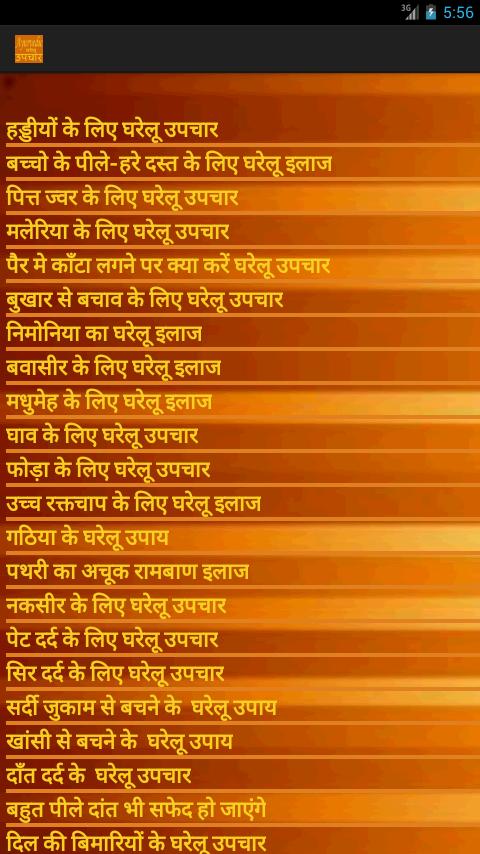 3G
5:56
Ayurvedic
घरेलू
उपचार
हड्डीयों के लिए घरेलू उपचार
बच्चो के पीले-हरे दस्त के लिए घरेलू इलाज
पित्त ज्वर के लिए घरेलू उपचार
मलेरिया के लिए घरेलू उपचार
पैर मे काँटा लगने पर क्या करें घरेलू उपचार
बुखार से बचाव के लिए घरेलू उपचार
निमोनिया का घरेलू इलाज
बवासीर के लिए घरेलू इलाज
मधुमेह के लिए घरेलू इलाज
घाव के लिए घरेलू उपचार
फोड़ा के लिए घरेलू उपचार
उच्च रक्तचाप के लिए घरेलू इलाज
गठिया के घरेलू उपाय
पथरी का अचूक रामबाण इलाज
नकसीर के लिए घरेलू उपचार
पेट दर्द के लिए घरेलू उपचार
सिर दर्द के लिए घरेलू उपचार
सर्दी जुकाम से बचने के घरेलू उपाय
खांसी से बचने के घरेलू उपाय
दाँत दर्द के घरेलू उपचार
बहुत पीले दांत भी सफेद हो जाएंगे
दिल की बिमारियों के घरेलू उपचार